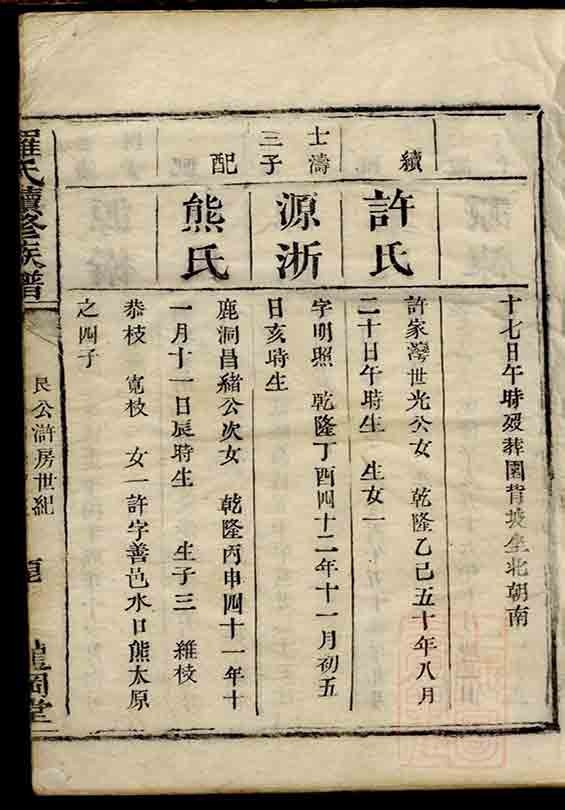 十七日午時歿葬園背坡坐北朝南
續
許氏
許家灣世光公女 乾隆乙巳五十年八月
二十日午時生 生女一
士濤
三子
源浙
字明照 乾隆丁酉四十二年十一月初五
日亥時生
配
熊氏
鹿洞昌緒公次女 乾隆丙申四十一年十
一月十一日辰時生 生子三 維枝
恭枝 寬枝 女一許字善邑水口熊太原
之四子
羅氏續修族譜
良公滸房世紀
龍岡堂